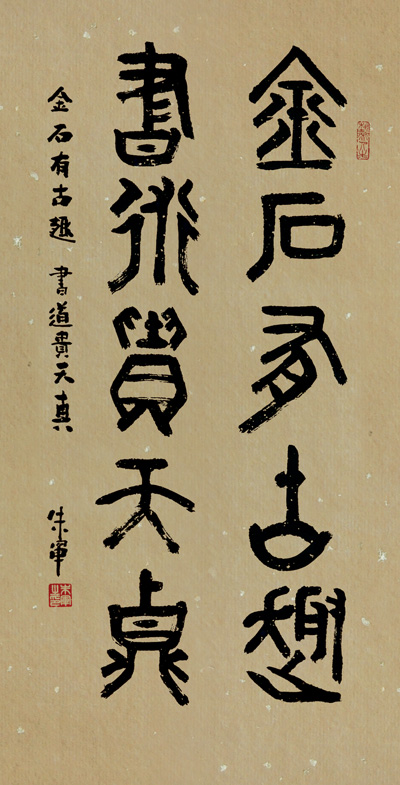 金石有古趣
書道貴天真
金石有古趣 書道貴天真 朱軍